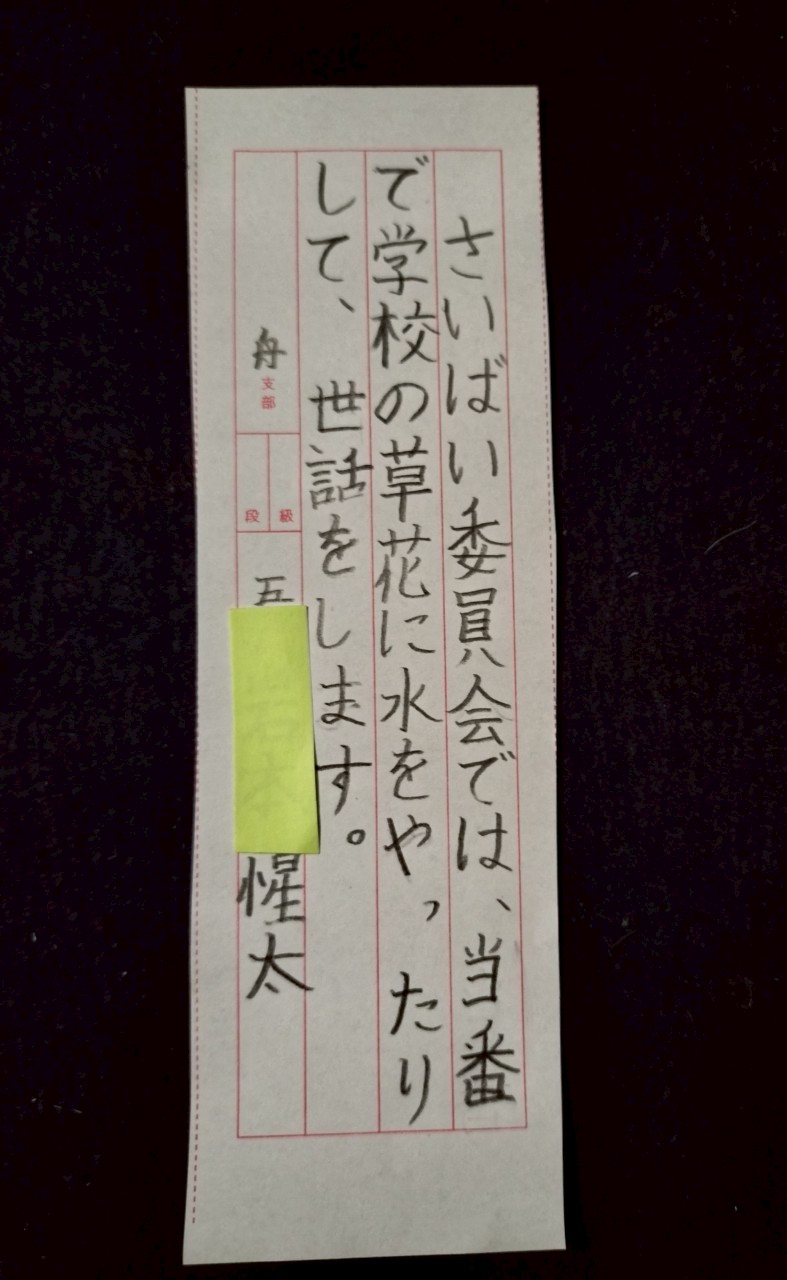 さいばい委員会では、当番
で学校の草花に水をやったり
して、世話をします。
舟支部
級
段
五
惺太